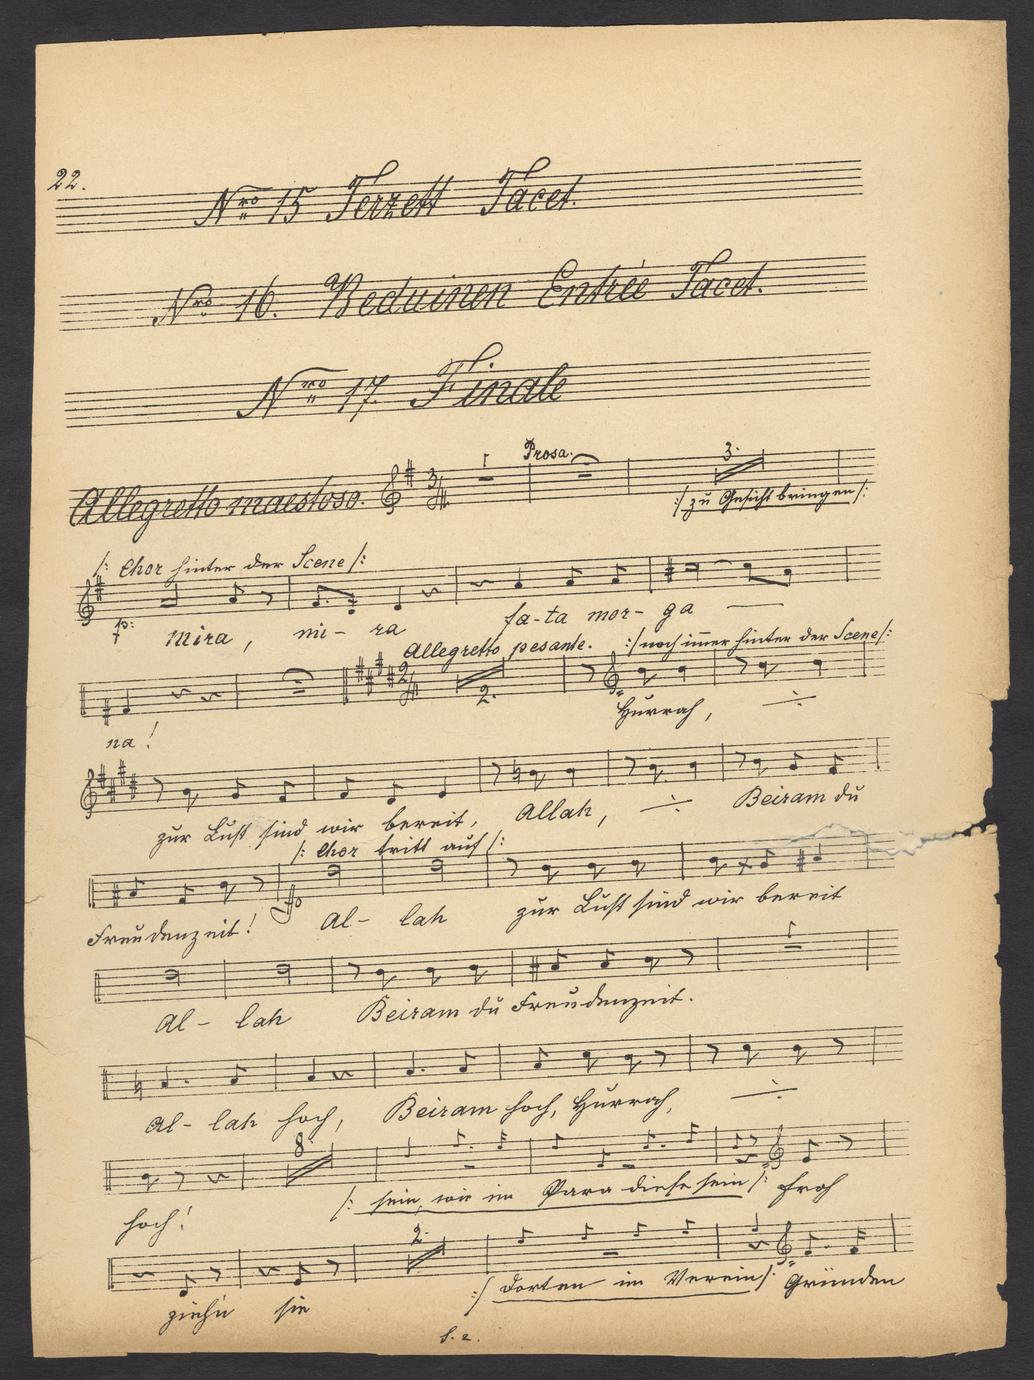 22.
Nro 15 Terzett Tacet.
Nro 16. Beduinen Entrée Tacet.
Nro 17. Finale
Prosa. 3.
Allegretto maestoso. 3/4
/: zu Gesicht bringen /:
/: Chor hinter der Scene /:
p: mira, mi- ra fa-ta mor- ga
Allegretto pesante. :/ noch im̄er hinter der Scene /:
2/4 2.
na! Hurrah, ÷
zur Lust sind wir bereit, Allah, ÷ Beiram du
/: Chor tritt auf /:
Freudenzeit! Al- lah zur Lust sind wir bereit
Al- lah Beiram du Freudenzeit.
Al- lah hoch, Beiram hoch, Hurrah, ÷
8.
hoch! /: sein, wir im Para diese sein /: froh
2.
ziehn sie :/ dorten im Verein /: Gründen